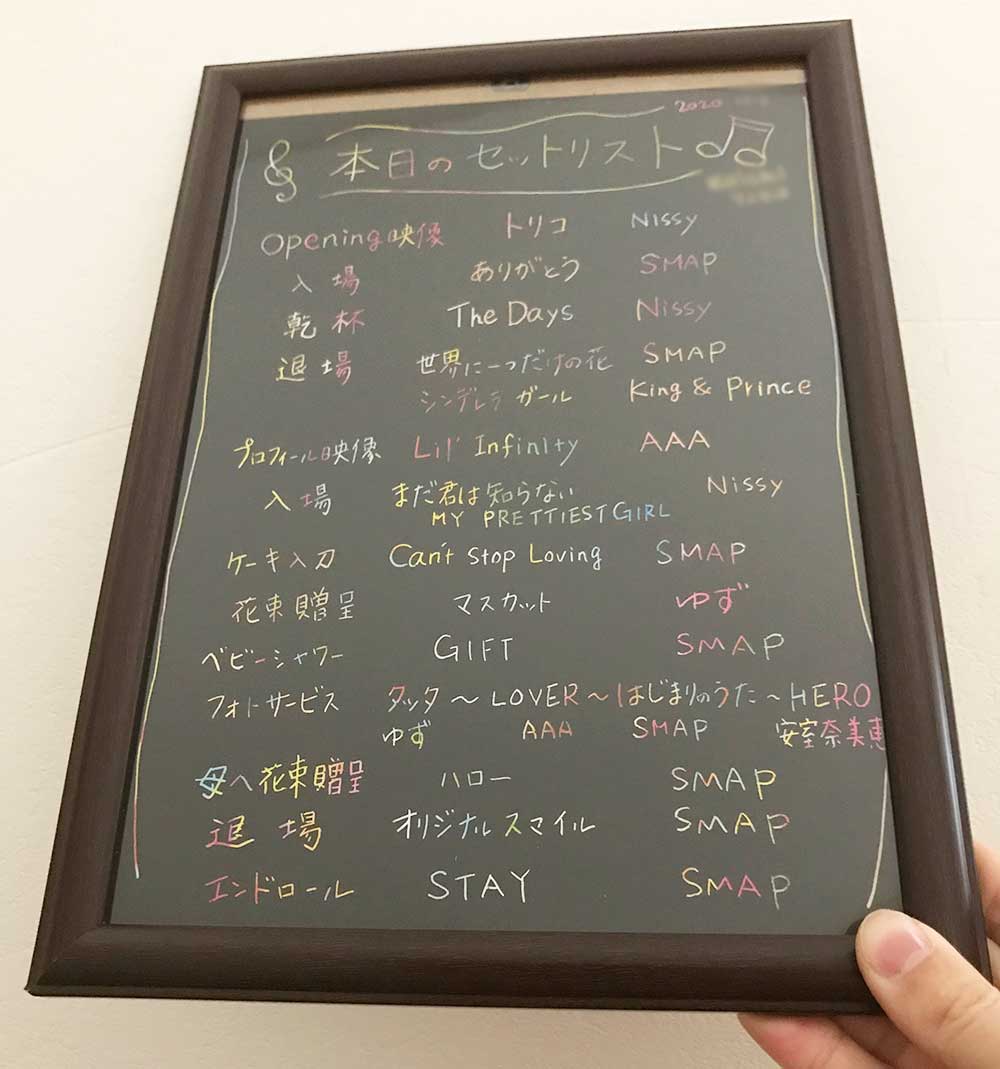 2020
本日のセットリスト
Opening映像 トリコ Nissy
入場 ありがとう SMAP
乾杯 The Days Nissy
退場 世界に一つだけの花 SMAP
シンデレラガール King & Prince
プロフィール映像 Lil' Infinity AAA
入場 まだ君は知らない Nissy
MY PRETTIEST GIRL
ケーキ入刀 Can't Stop Loving SMAP
花束贈呈 マスカット ゆず
ベビーシャワー GIFT SMAP
フォトサービス タッタ〜LOVER〜はじまりのうた〜HERO
ゆず AAA SMAP 安室奈美恵
母へ花束贈呈 ハロー SMAP
退場 オリジナルスマイル SMAP
エンドロール STAY SMAP